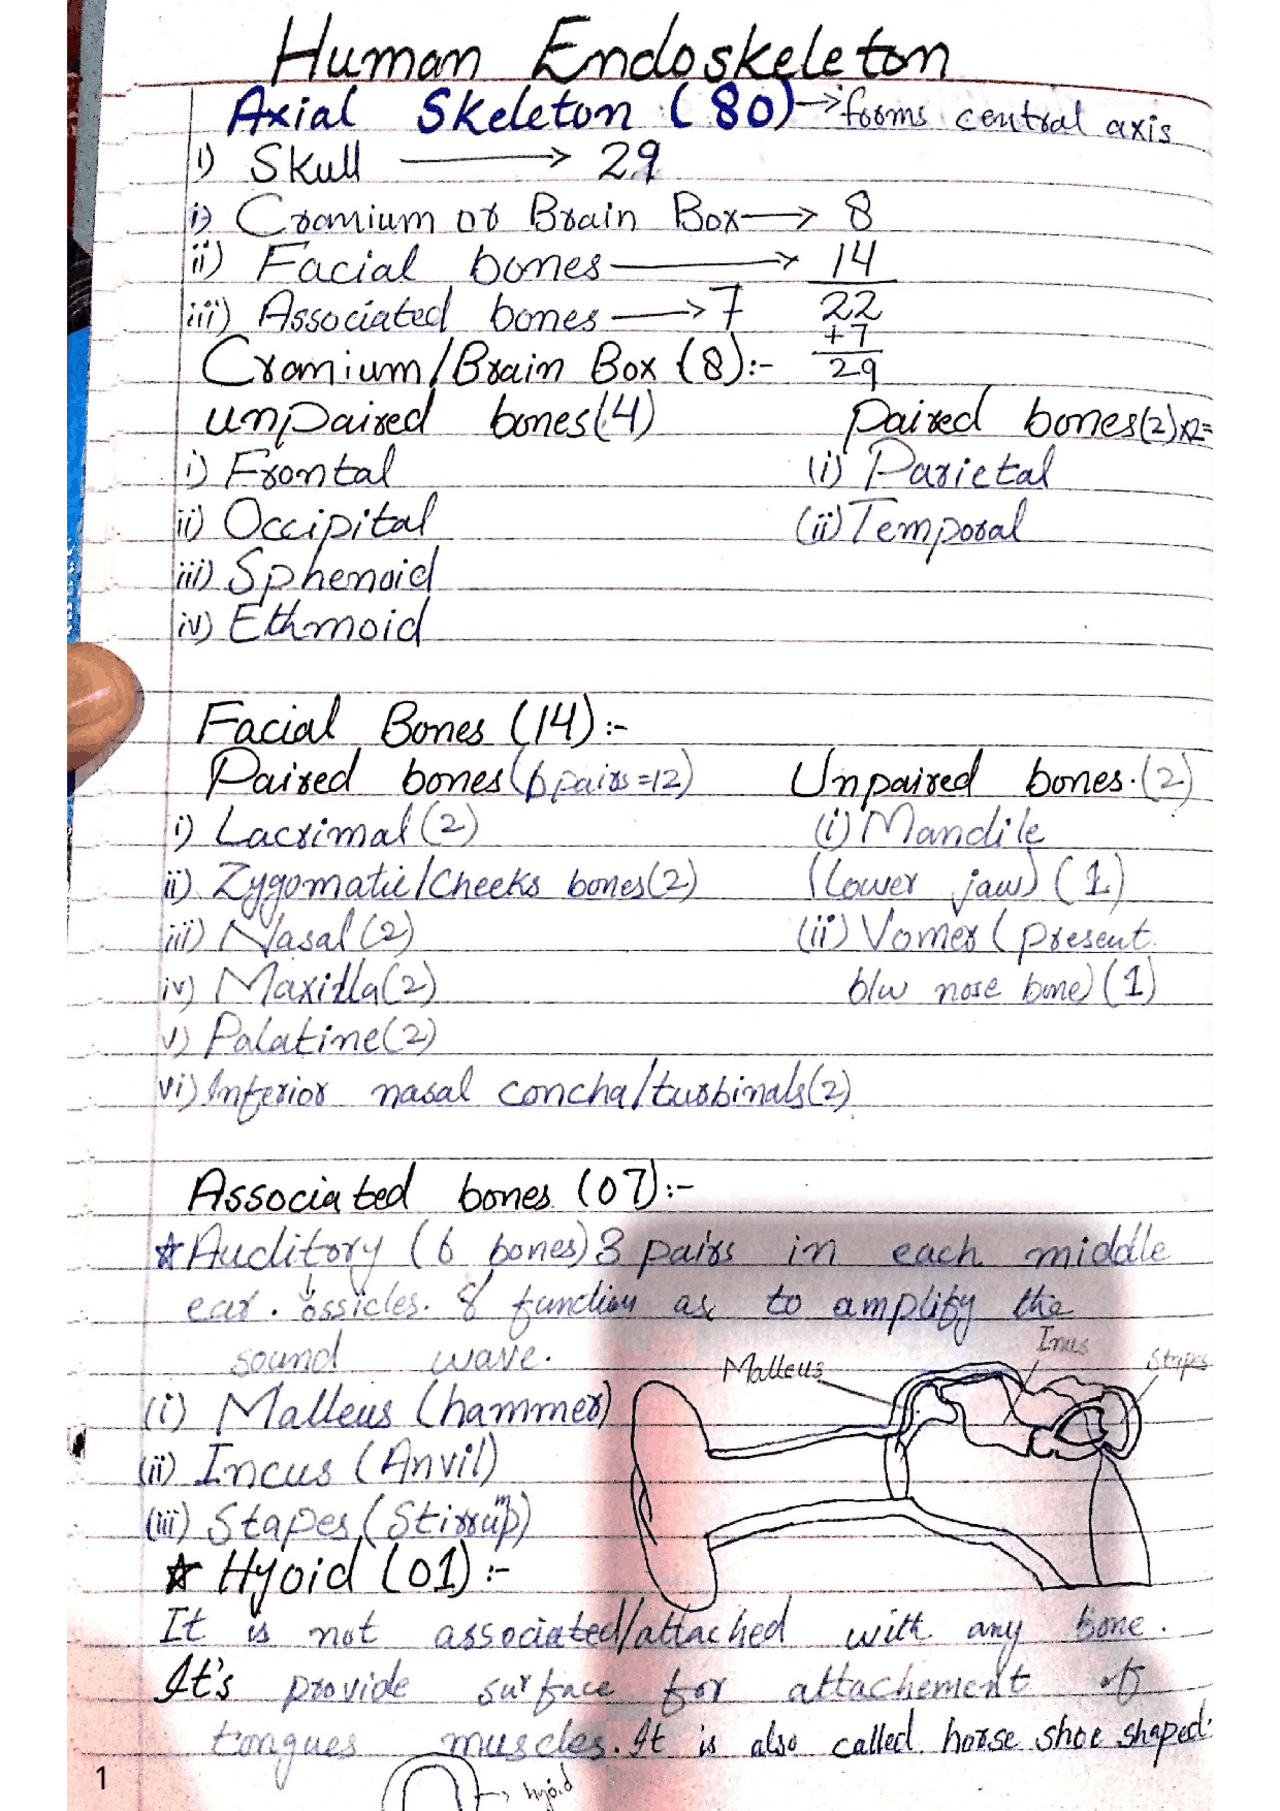 Human Endoskeleton
Axial Skeleton (80)→forms central axis
1) Skull → 29
i) Cramium or Brain Box → 8
ii) Facial bones → 14
iii) Associated bones → 7 22
+7
Cramium/Brain Box (8):- 29
unpaired bones(4) paired bones(2)x2=
i) Frontal (i) Parietal
ii) Occipital (ii) Temporal
iii) Sphenoid
iv) Ethmoid
Facial Bones (14):-
Paired bones(6 pairs=12) Unpaired bones.(2)
i) Lacrimal (2) (i) Mandile
ii) Zygomatic/Cheeks bones(2) (lower jaw) (1)
iii) Nasal (2) (ii) Vomer (present
iv) Maxilla(2) b/w nose bone) (1)
v) Palatine(2)
vi) Inferior nasal concha/turbinals(2)
Associated bones (07):-
☆Auditory (6 bones) 3 pairs in each middle
ear. ossicles. & function as to amplify the
sound wave.
Malleus Incus Stapes
(i) Malleus (hammer)
(ii) Incus (Anvil)
(iii) Stapes (Stirrup)
☆ Hyoid (01):-
It is not associated/attached with any bone.
It's provide surface for attachement of
tongues muscles. It is also called horse shoe shaped.
→ hyoid
1